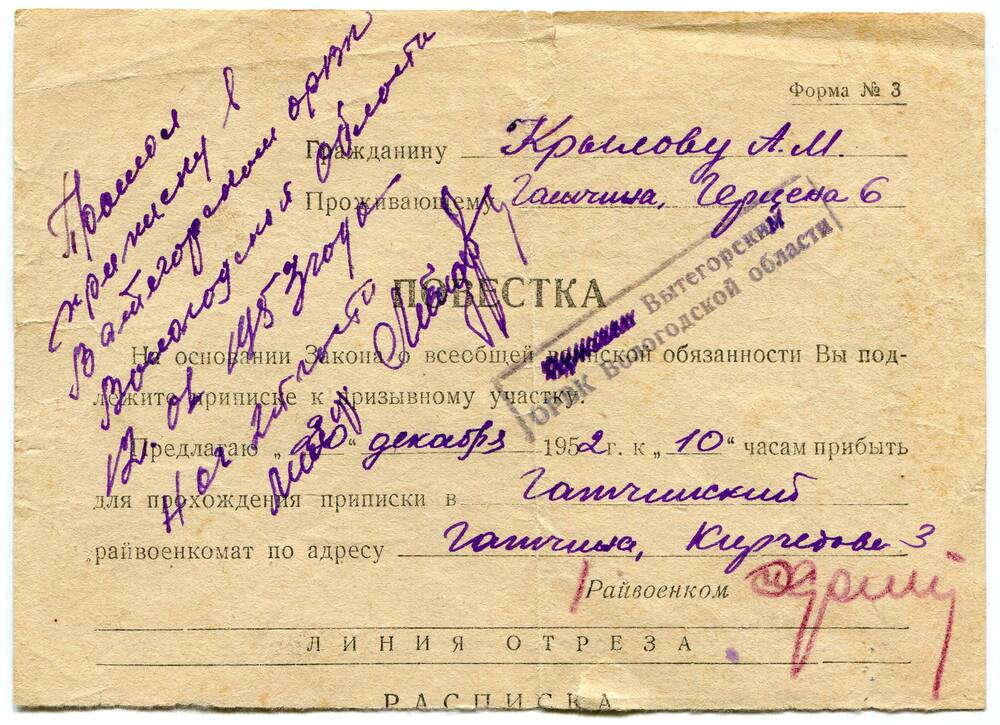 Форма № 3
Гражданину Крылову А.М.
Проживающему Гатчина, Герцена 6
ПОВЕСТКА
На основании Закона о всеобщей воинской обязанности Вы под-
лежите приписке к призывному участку.
Предлагаю „20“ декабря 1952 г. к „10“ часам прибыть
для прохождения приписки в Гатчинский
райвоенкомат по адресу Гатчина, 3
Райвоенком
ЛИНИЯ ОТРЕЗА
РАСПИСКА
Прошел
приписку в
Вытегорском орвк
Вологодской области
12. 01 1953 года
Нач 2й части
Вытегорский
ОРВК Вологодской области